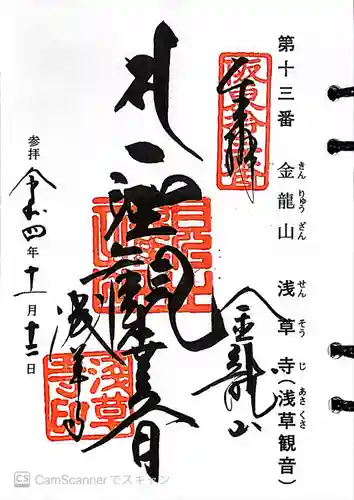 第十三番　金龍山　浅草寺(浅草観音)
きん りゅう ざん　せん そう じ　あさ くさ
奉拝
金龍山
聖観世音
浅草寺
浅草寺印
参拝 令和四年十一月十二日
CS CamScanner でスキャン